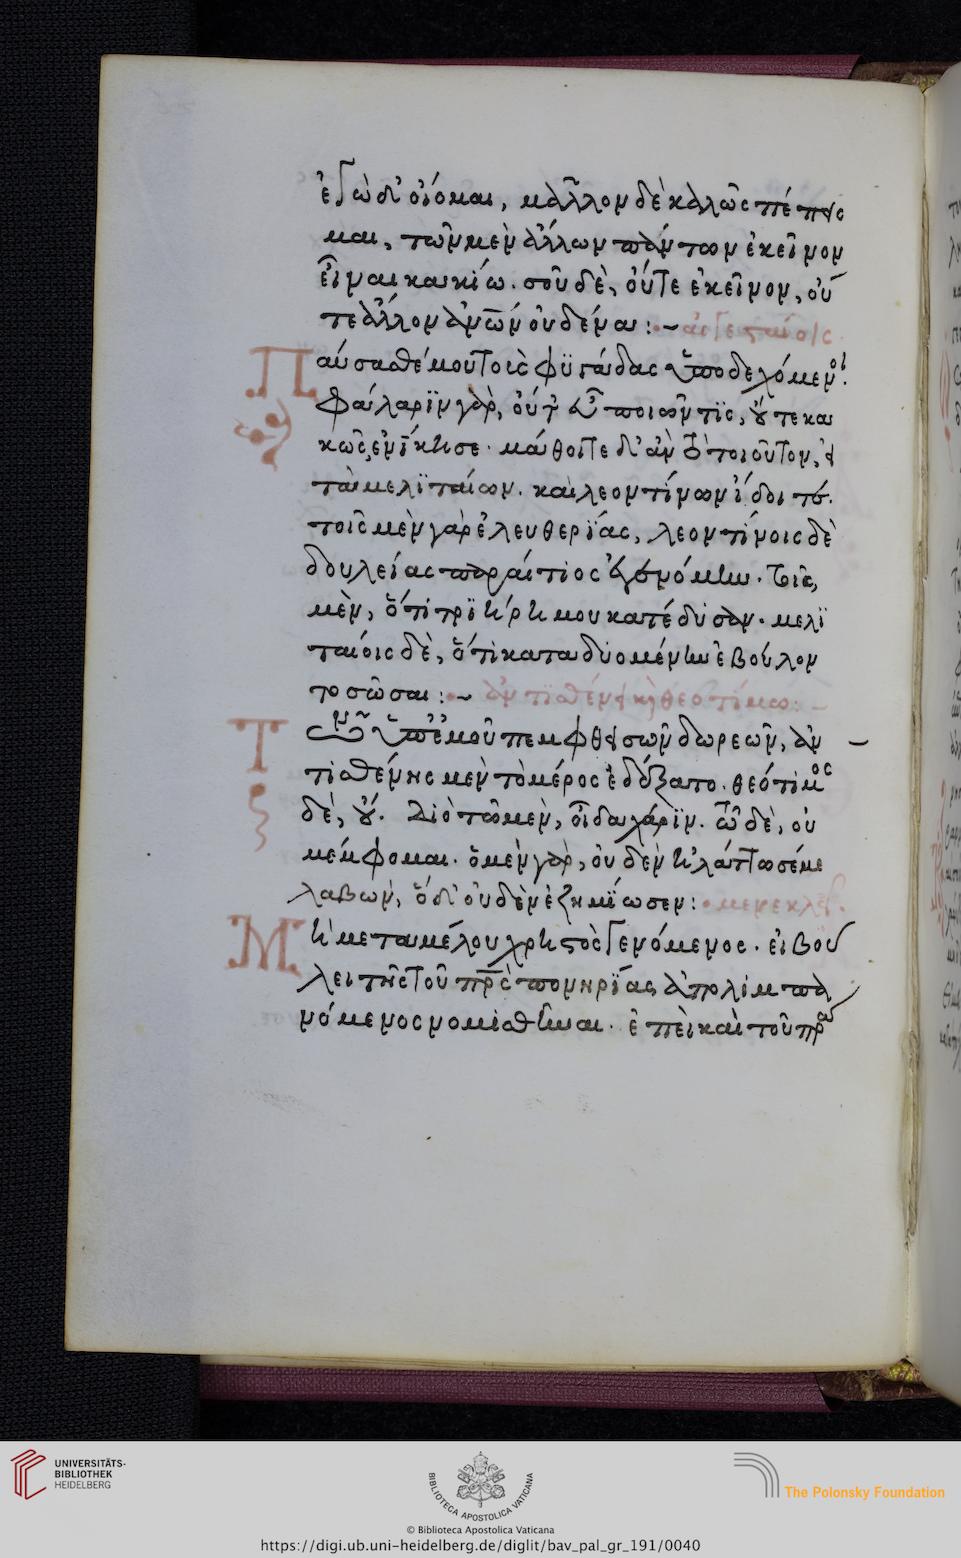 ἐγὼ δ' οἴομαι, μᾶλλον δὲ καλῶς πέπεις
μαι, τῶν μὲν ἄλλων πάντων ἐκεῖνον
εἶναι κακίω. σοῦ δὲ, οὔτε ἐκεῖνον, οὔ
τε ἄλλον ἀν͞ων οὐδένα :~
Παύσασθέ μου τοὺς φϋγάδας ὑποδεχόμενοι.
Φάλαρϊν γὰρ, οὔτ' εὖ ποιῶν τϊς, οὔτε κα
κῶς ἐνίκησε. μάθοιτε δ' ἂν τὸ τοιοῦτον, ἐκ
τῶν μελϊταίων. καὶ λεοντίνων
τοῖς μὲν γὰρ ἐλευθερϊας, λεοντίνοις δὲ
δουλείας παραίτιος ἐγενόμην. τοῖς
μὲν, ὅτι τρϊήρη μου κατέδυσαν. μελϊ
ταίοις δὲ, ὅτι καταδυομένην ἐβούλον
το σῶσαι :~ ἀντϊσθένει κὴ θεοτίμω :~
Τῶν ὑπ' ἐμοῦ πεμφθεισῶν δωρεῶν, ἀν
τισθένης μὲν τὸ μέρος ἐδέξατο. θεότιμος
δὲ, οὔ. Διὸ τῶ μὲν, οἶδα χάρϊν. ὧ δὲ, οὐ
μέμφομαι. ὁ μὲν γὰρ, οὐδὲν ἠλάττωσέ με
λαβών, ὁ δ' οὐδὲν ἐζημϊωσεν : μενεκλεῖ.
Μὴ μεταμέλου χρηστὸς γενόμενος. εἰ βού
λει τῆς τοῦ πρὸς πονηρϊας ἀπολιμπα
νόμενος νομισθῆναι. ἐπεὶ καὶ τοῦ
UNIVERSITÄTS-
BIBLIOTHEK
HEIDELBERG
BIBLIOTECA APOSTOLICA VATICANA
The Polonsky Foundation
© Biblioteca Apostolica Vaticana
https://digi.ub.uni-heidelberg.de/diglit/bav_pal_gr_191/0040